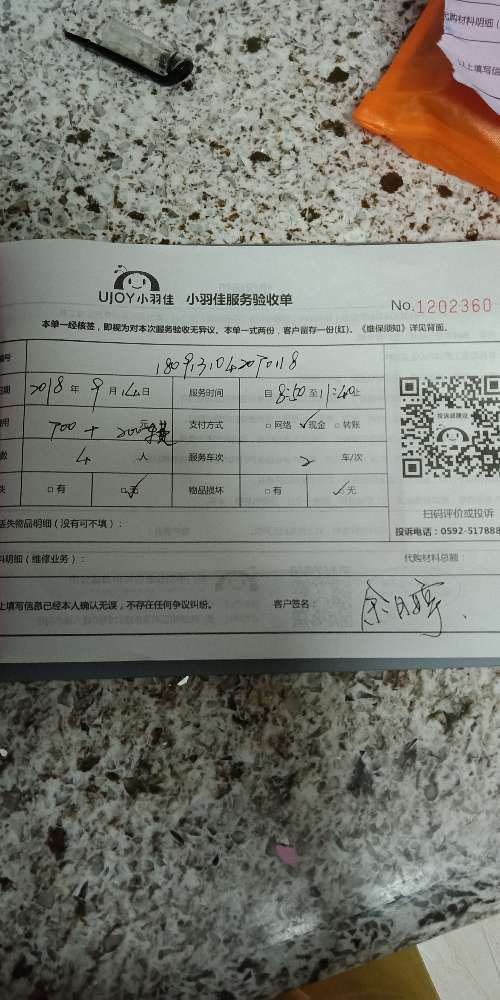 代购材料明细（
以上填写信
UJOY小羽佳 小羽佳服务验收单
No.1202360
本单一经核签，即视为对本次服务验收无异议。本单一式两份，客户留存一份(红)。《维保须知》详见背面。
编号
日期 2018年 9月14日 服务时间 自 8:50 至 11:40止
700 + 200 支付方式 □网络 ✓现金 □转账
数 4 人 服务车次 2 车/次
失 □有 □无 ✓ 物品损坏 □有 ✓无
投诉或建议
扫码评价或投诉
丢失物品明细（没有可不填）：
投诉电话：0592-517888
料明细（维修业务）：
代购材料总额：
上填写信息已经本人确认无误，不存在任何争议纠纷。 客户签名：